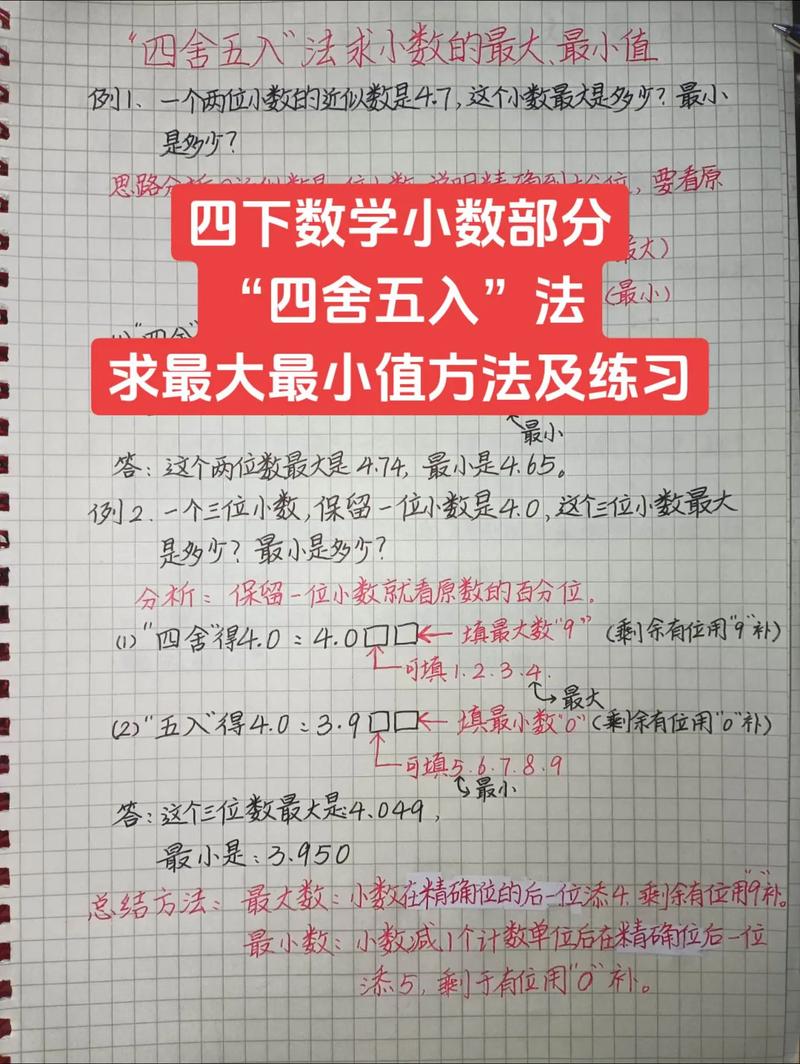 “四舍五入”法求小数的最大、最小值
例1、一个两位小数的近似数是4.7,这个小数最大是多少?最小
是多少?
思路分析
要看原
四下数学小数部分
最大)
“四舍五入”法
(最小)
求最大最小值方法及练习
最小
答:这个两位数最大是4.74,最小是4.65。
例2.一个三位小数,保留一位小数是4.0,这个三位小数最大
是多少?最小是多少?
分析:保留一位小数就看原数的百分位.
(1)“四舍”得4.0:4.0□□←填最大数“9”(剩余有位用“9”补)
可填1.2.3.4.
最大
(2)“五入”得4.0:3.9□□←填最小数“0”(剩余有位用“0”补)
可填5.6.7.8.9
最小
答:这个三位数最大是:4.049,
最小是:3.950
总结方法:最大数:小数在精确位的后一位添4,剩余有位用“9”补。
最小数:小数减1个计数单位后在精确位后一位
添5,剩于有位用“0”补。